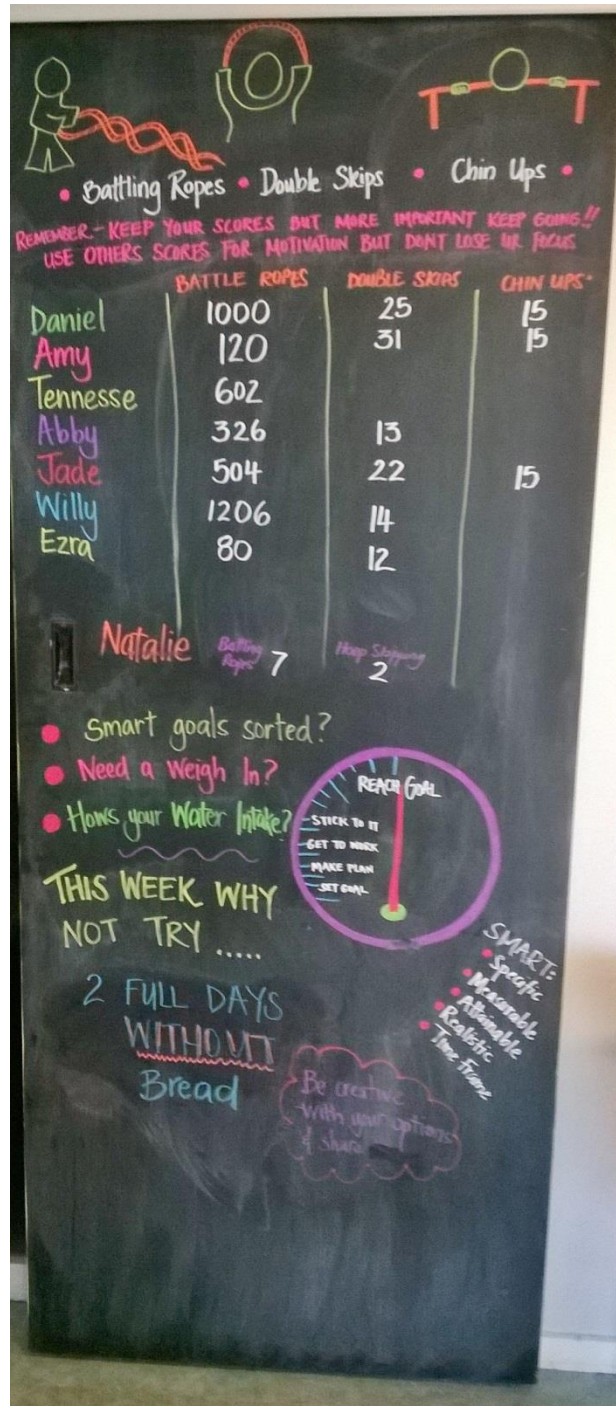 • Battling Ropes • Double Skips • Chin Ups •
REMEMBER - KEEP YOUR SCORES BUT MORE IMPORTANT KEEP GOING!!
USE OTHERS SCORES FOR MOTIVATION BUT DONT LOSE UR FOCUS
BATTLE ROPES DOUBLE SKIPS CHIN UPS
Daniel 1000 25 15
Amy 120 31 15
Tennesse 602
Abby 326 13
Jade 504 22 15
Willy 1206 14
Ezra 80 12
Natalie Battling Ropes 7 Hoop Skipping 2
• Smart goals sorted?
• Need a Weigh In?
• Hows your Water Intake?
REACH GOAL
STICK TO IT
GET TO WORK
MAKE PLAN
SET GOAL
THIS WEEK WHY
NOT TRY .....
2 FULL DAYS
WITHOUT
Bread
SMART:
• Specific
• Measurable
• Attainable
• Realistic
• Time Frame
Be creative
with your options
& share